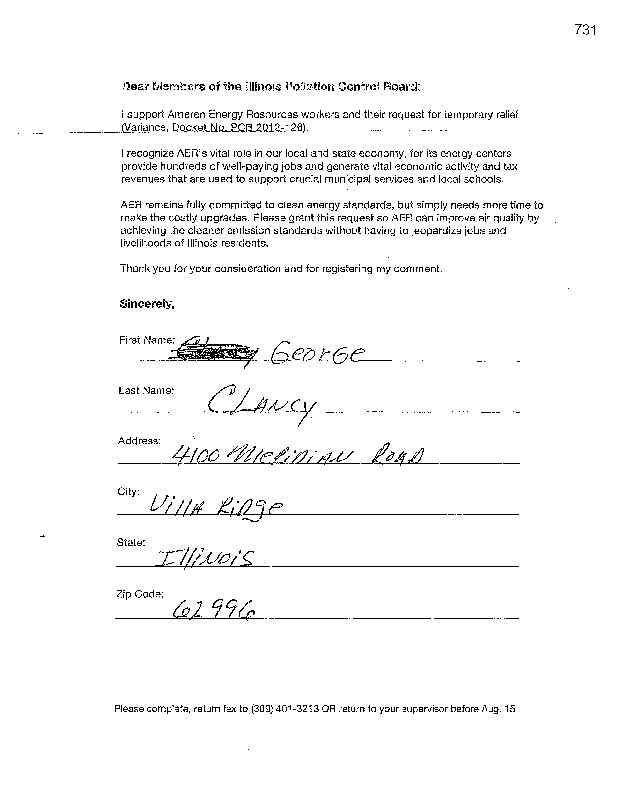 731
Dear Members of the Illinois Pollution Control Board:
I support Ameren Energy Resources workers and their request for temporary relief
(Variance, Docket No. PCB 2012-126).
I recognize AER's vital role in our local and state economy, for its energy centers
provide hundreds of well-paying jobs and generate vital economic activity and tax
revenues that are used to support crucial municipal services and local schools.
AER remains fully committed to clean energy standards, but simply needs more time to
make the costly upgrades. Please grant this request so AER can improve air quality by
achieving the cleaner emission standards without having to jeopardize jobs and
livelihoods of Illinois residents.
Thank you for your consideration and for registering my comment.
Sincerely,
First Name: George
Last Name: CLANCY
Address: 4100 MERIDIAN ROAD
City: Villa Ridge
State: Illinois
Zip Code: 62996
Please complete, return fax to (309) 401-3213 OR return to your supervisor before Aug. 15